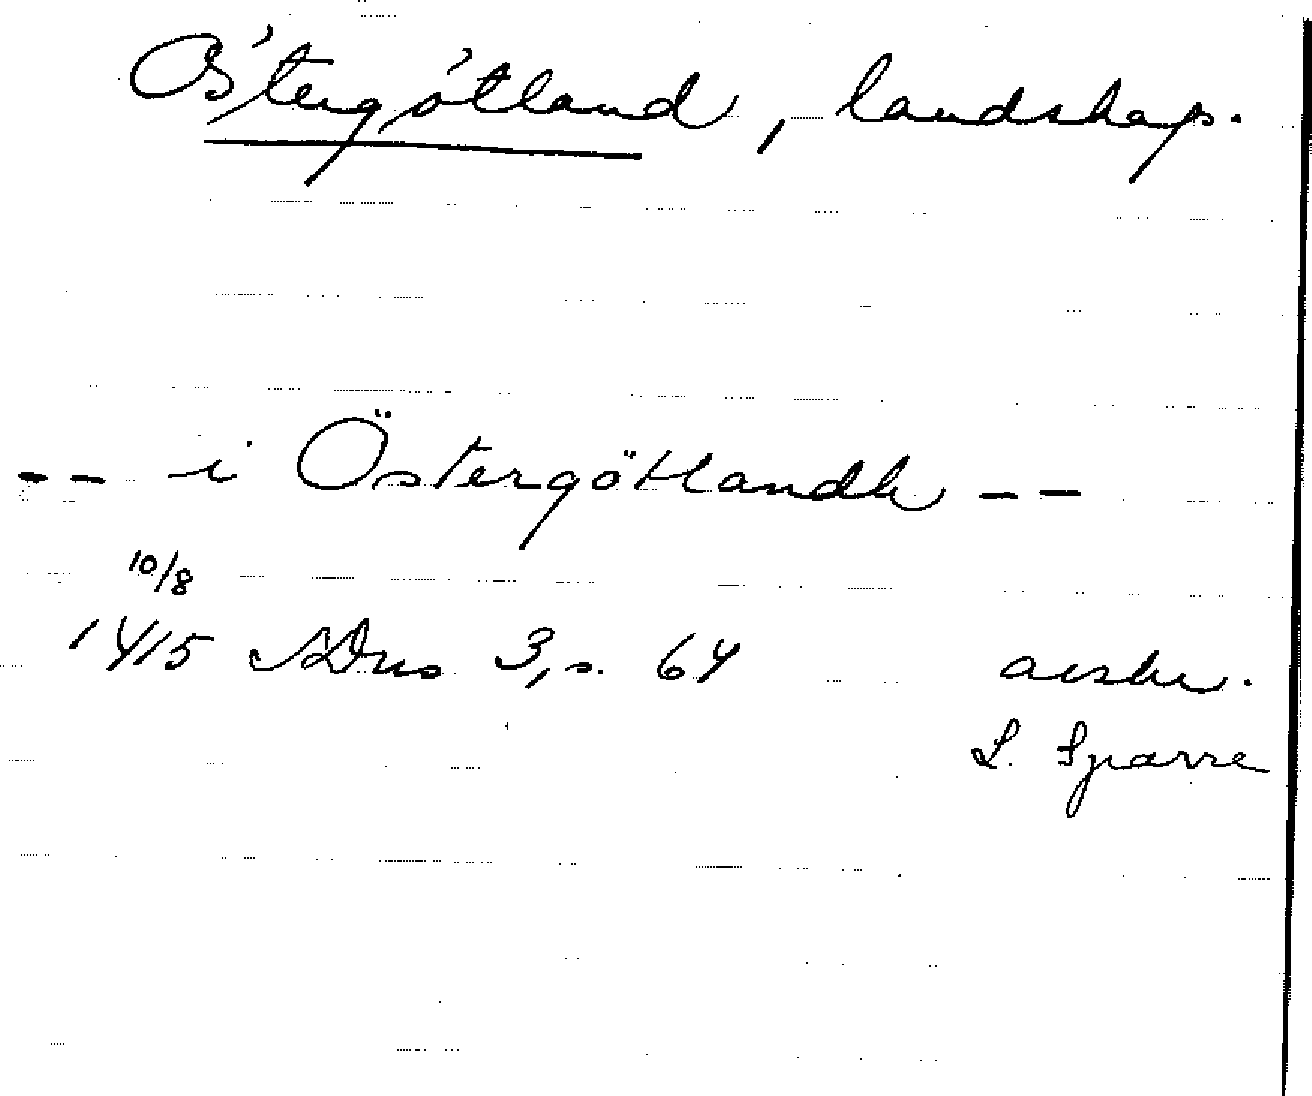 Östergötland, landskap.
-- i Östergötlandh --
10/8
1415 SDns 3, s. 64 avskr.
L. Sparre